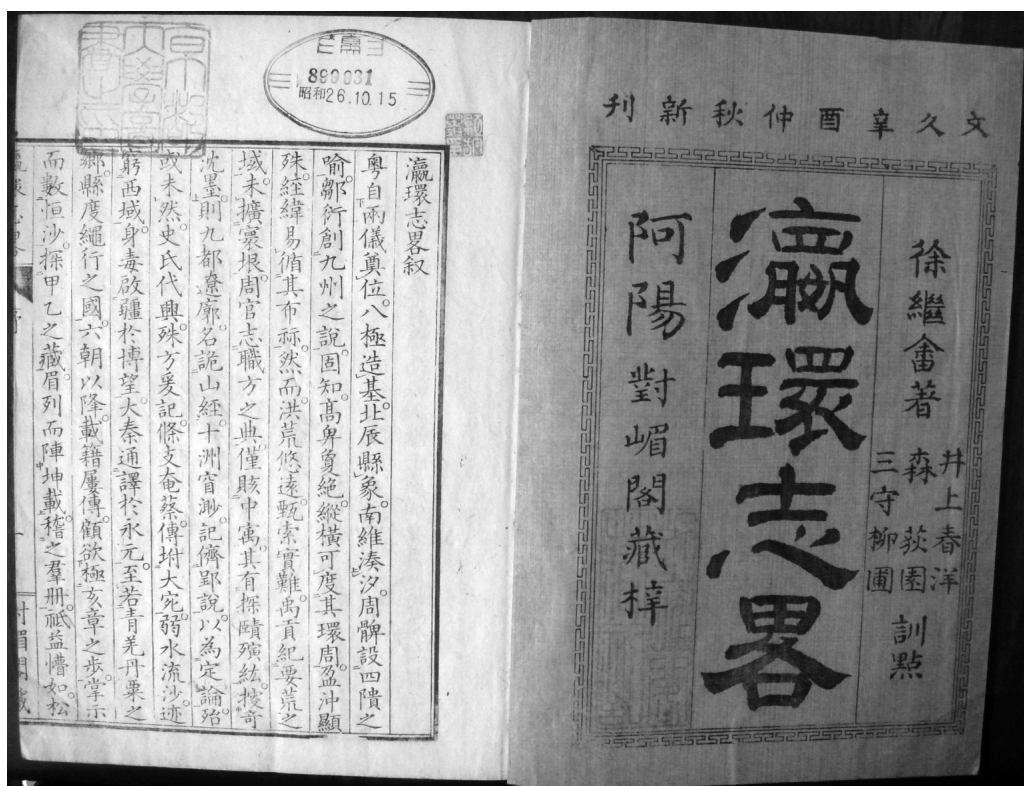 文久辛酉仲秋新刊
徐繼畬著
井上春洋
森荻園
三守柳圃
訓點
瀛環志畧
阿陽對嵋閣藏梓
899031
昭和26.10.15
瀛環志畧叙
粤自兩儀奠位。八極造基。北辰縣象。南維湊汐。周髀設四隤之
喻。鄒衍創九州之說。固知高卑敻絕。縱橫可度。其環周盈沖顯
殊。經緯易循。其布袮然。而洪荒悠遠。甄索實難。禹貢紀要荒之
域。未擴寰垠。周官志職方之典。僅賅中寓。其有探賾殯紘。技奇
沈墨。則九都遼廓。名詭山經。十洲窅眇。記儕郢說。以為定論。殆
或未然。史氏代興。殊方爰記。條支奄蔡。傳坿大宛。弱水流沙。迹
窮西域。身毒啟疆於博望。大秦通譯於永元。至若青羌丹粟之
鄉。縣度繩行之國。六朝以降。載籍屢傳。顧欲極亥章之步。掌示
而數恒沙。探甲乙之藏。眉列而陣坤載。稽之羣册。祗益懵如。松